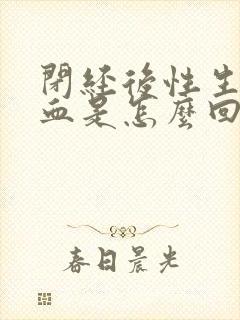 閉經後性生
血是怎麼回
春日晨光